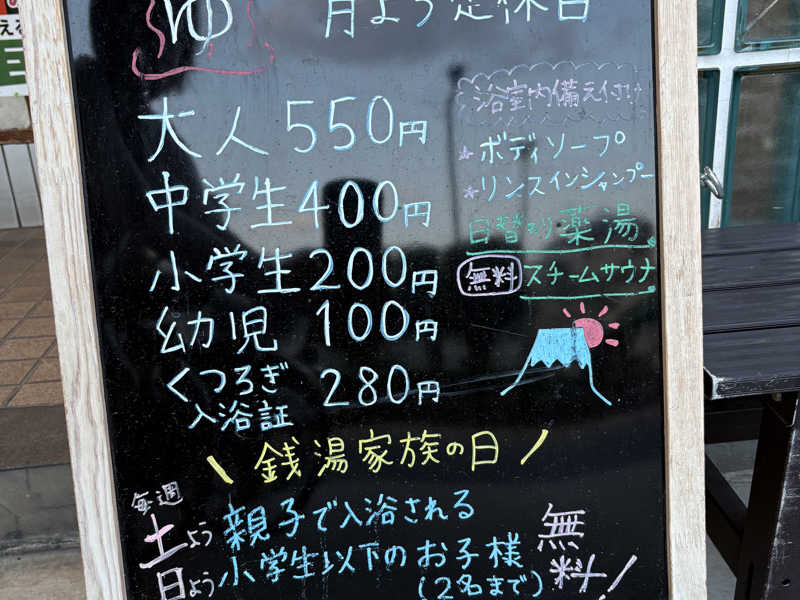 ゆ 月よう定休日
大人 550円
中学生 400円
小学生 200円
幼児 100円
くつろぎ入浴証 280円
浴室内備え付け
★ボディソープ
★リンスインシャンプー
日替り薬湯
無料 スチームサウナ
\ 銭湯家族の日 /
毎週
土よう
日よう
親子で入浴される
小学生以下のお子様
(2名まで)
無料!